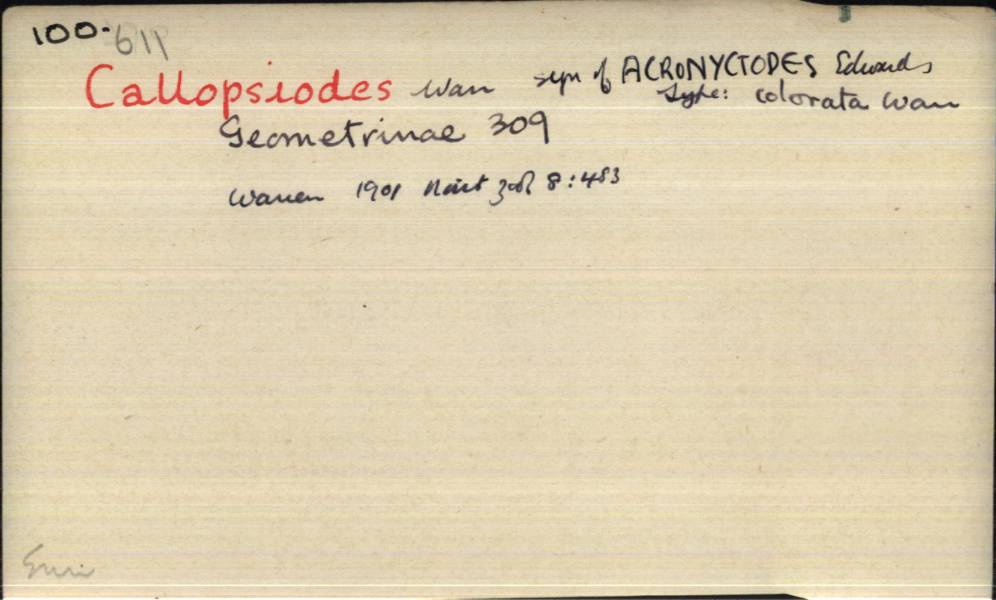 100. 611
Callopsiodes Warr syn of ACRONYCTODES Edwards
Type: colorata Warr
Geometrinae 309
Warren 1901 Novit Zool 8:483